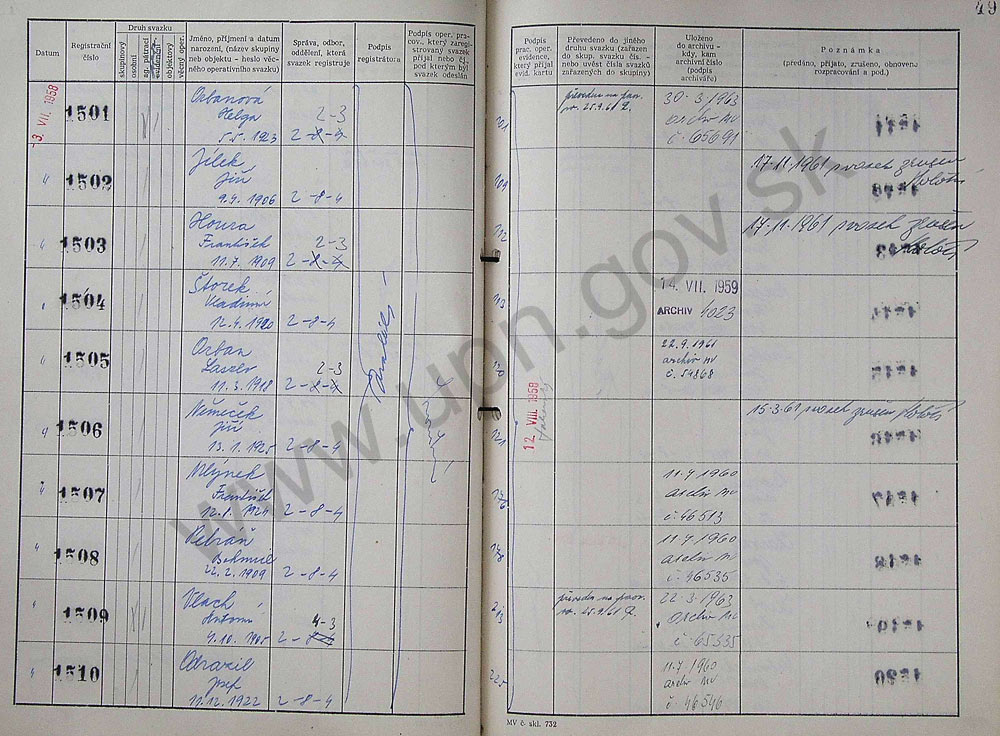 49
Datum
Registrační číslo
Druh svazku
skupinový
osobní
ag. pátrací
evidenční
objektový
věcný oper.
Jméno, příjmení a datum
narození, (název skupiny
neb objektu - heslo věc-
ného operativního svazku)
Správa, odbor,
oddělení, která
svazek registruje
Podpis
registrátora
Podpis oper. pra-
cov., který zaregi-
strovaný svazek
přijal nebo čj.
pod kterým byl
svazek odeslán
Podpis
prac. oper.
evidence,
který přijal
evid. kartu
Převedeno do jiného
druhu svazku (zařazen
do skup. svazku čís. -
nebo uvést čísla svazků
zařazených do skupiny)
Uloženo
do archivu -
kdy, kam
archivní číslo
(podpis
archiváře)
Poznámka
(předáno, přijato, zrušeno, obnoveno,
rozpracování a pod.)
-3. VII. 1958
1501
Orbanová
Helga
5.5. 1923
2-3
2-8-4
201
převeden na prac.
25.9.61
30-3/1963
archiv MV
č. 65691
" 1502
Jílek
Jiří
9.4. 1906
2-8-4
109
17-11-1961 svazek zrušen
" 1503
Houra
František
11.7. 1909
2-3
2-8-4
112
17-11-1961 svazek zrušen
" 1504
Štorek
Vladimír
12.4. 1920
2-8-4
113
14. VII. 1959
ARCHIV 4023
" 1505
Orban
Laszlo
11.3. 1918
2-3
2-8-4
12. VIII. 1958
22.9.1961
archiv MV
č. 54868
" 1506
Němeček
Jiří
13.1. 1925
2-8-4
121
15-3-61 svazek zrušen
" 1507
Mlýnek
František
12.1. 1924
2-8-4
176
11.4 1960
archiv MV
č. 46513
" 1508
Bohumil
22.2. 1909
2-8-4
178
11.4 1960
archiv MV
č. 46535
" 1509
Vlach
Antonín
9.10. 1905
4-3
2-8-4
213
převeden na prac.
25.9.61
22-3-1963
archiv MV
č. 65335
" 1510
Odrazil
Josef
11.12. 1922
2-8-4
225
11.4 1960
archiv MV
č. 46546
MV č. skl. 732
www.upn.gov.sk